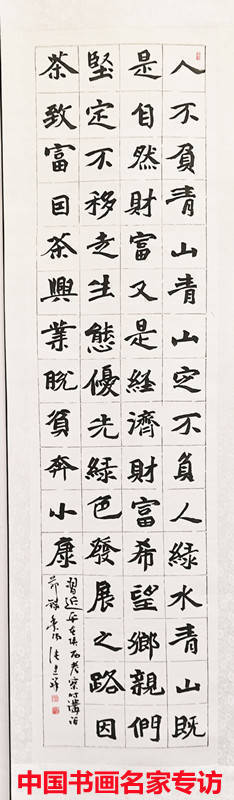 人不負青山青山定不負人綠水青山既
是自然財富又是經濟財富希望鄉親們
堅定不移走生態優先綠色發展之路因
茶致富因茶興業脫貧奔小康
習近平在陕西考察时講話
中国书画名家专访